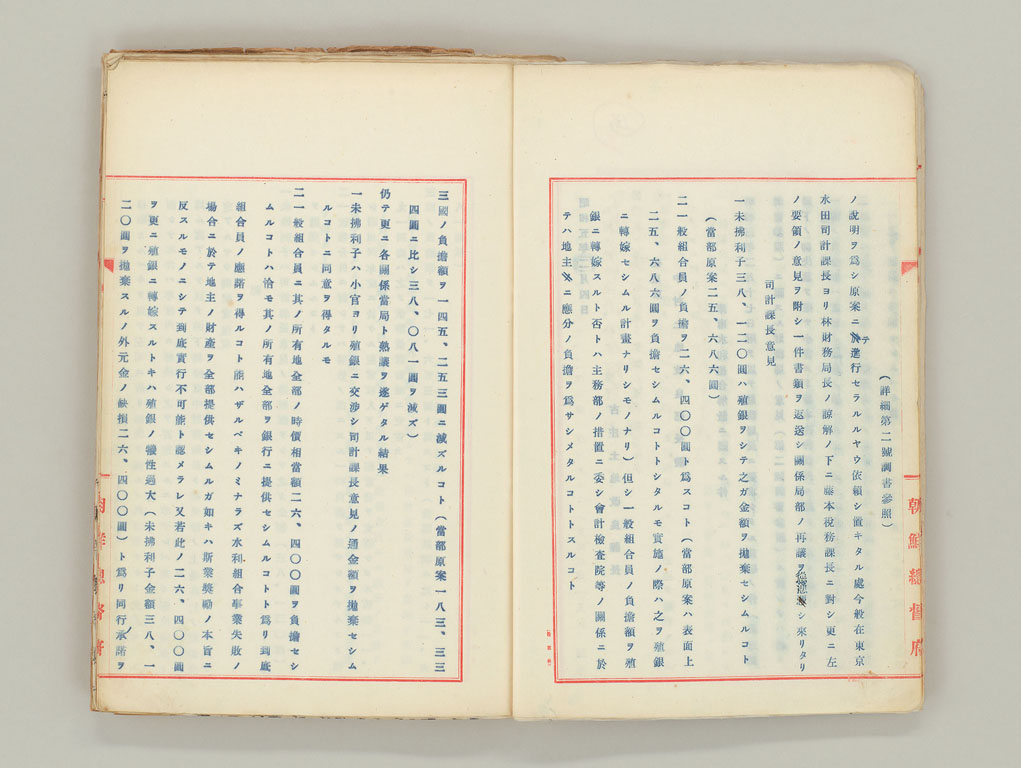 (詳細第二號調書參照)
ノ說明ヲ爲シ原案ニテ進行セラルルヤウ依賴シ置キタル處今般在東京
水田司計課長ヨリ林財務局長ノ諒解ノ下ニ藤本稅務課長ニ對シ更ニ左
ノ要領ノ意見ヲ附シ一件書類ヲ返送シ關係局部ノ再議ヲ慫慂シ來リタリ
司計課長意見
一未拂利子三八、一二〇圓ハ殖銀ヲシテ之ガ金額ヲ拋棄セシムルコト
(當部原案二五、六八六圓)
二一般組合員ノ負擔ヲ二六、四〇〇圓ト爲スコト(當部原案ハ表面上
二五、六八六圓ヲ負擔セシムルコトトシタルモ實施ノ際ハ之ヲ殖銀
ニ轉嫁セシムル計畫ナリシモノナリ)但シ一般組合員ノ負擔額ヲ殖
銀ニ轉嫁スルト否トハ主務部ノ措置ニ委シ會計檢查院等ノ關係ニ於
テハ地主ニ應分ノ負擔ヲ爲サシメタルコトトスルコト
朝鮮總督府
三國ノ負擔額ヲ一四五、二五三圓ニ減ズルコト(當部原案一八三、三三
四圓ニ比シ三八、〇八一圓ヲ減ズ)
仍テ更ニ各關係當局ト熟議ヲ遂ゲタル結果
一未拂利子ハ小官ヨリ殖銀ニ交涉シ司計課長意見ノ通金額ヲ拋棄セシム
ルコトニ同意ヲ得タルモ
二一般組合員ニ其ノ所有地全部ノ時價相當額二六、四〇〇圓ヲ負擔セシ
ムルコトハ恰モ其ノ所有地全部ヲ銀行ニ提供セシムルコトト爲リ到底
組合員ノ應諾ヲ得ルコト能ハザルベキノミナラズ水利組合事業失敗ノ
場合ニ於テ地主ノ財產ヲ全部提供セシムルガ如キハ斯業奬勵ノ本旨ニ
反スルモノニシテ到底實行不可能ト認メラレ又若此ノ二六、四〇〇圓
ヲ更ニ殖銀ニ轉嫁スルトキハ殖銀ノ犧牲過大(未拂利子金額三八、一
二〇圓ヲ拋棄スルノ外元金ノ缺損二六、四〇〇圓)ト爲リ同行承諾ヲ
朝鮮總督府